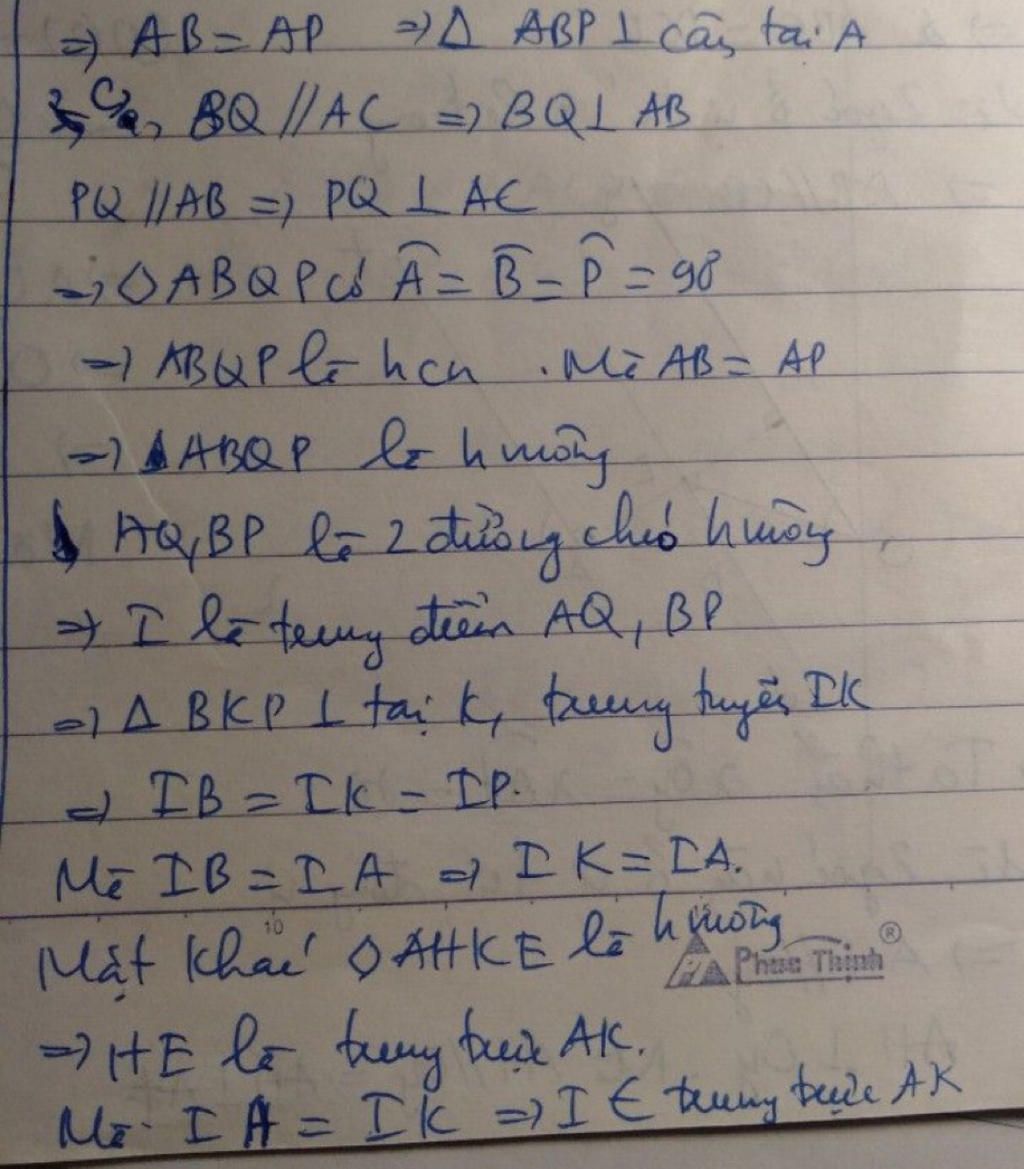 => AB = AP => Δ ABP ⊥ cân tại A
Có BQ // AC => BQ ⊥ AB
PQ // AB => PQ ⊥ AC
=> ◇ ABQP có Â = B̂ = P̂ = 90
=> ABQP là hcn . Mà AB = AP
=> ABQP là h vuông
AQ, BP là 2 đường chéo h vuông
=> I là trung điểm AQ, BP
=> Δ BKP ⊥ tại K, trung tuyến IK
=> IB = IK = IP.
Mà IB = IA => IK = IA.
10
Mặt khác ◇ AHKE là h vuông
Phúc Thịnh ®
=> HE là trung trực AK.
Mà IA = IK => I ∈ trung trực AK